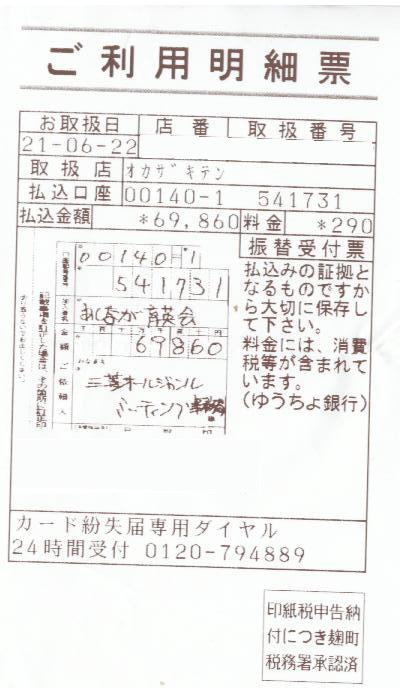 ご利用明細票
お取扱日 店番 取扱番号
21-06-22
取扱店 オカザキテン
払込口座 00140-1 541731
払込金額 *69,860 料金 *290
振替受付票
払込みの証拠と
なるものですか
ら大切に保存し
て下さい。
料金には、消費
税等が含まれて
います。
(ゆうちょ銀行)
00140-1
541731
あしなが育英会
69860
三菱オールジャンル
ミーティング
カード紛失届専用ダイヤル
24時間受付 0120-794889
印紙税申告納
付につき麹町
税務署承認済